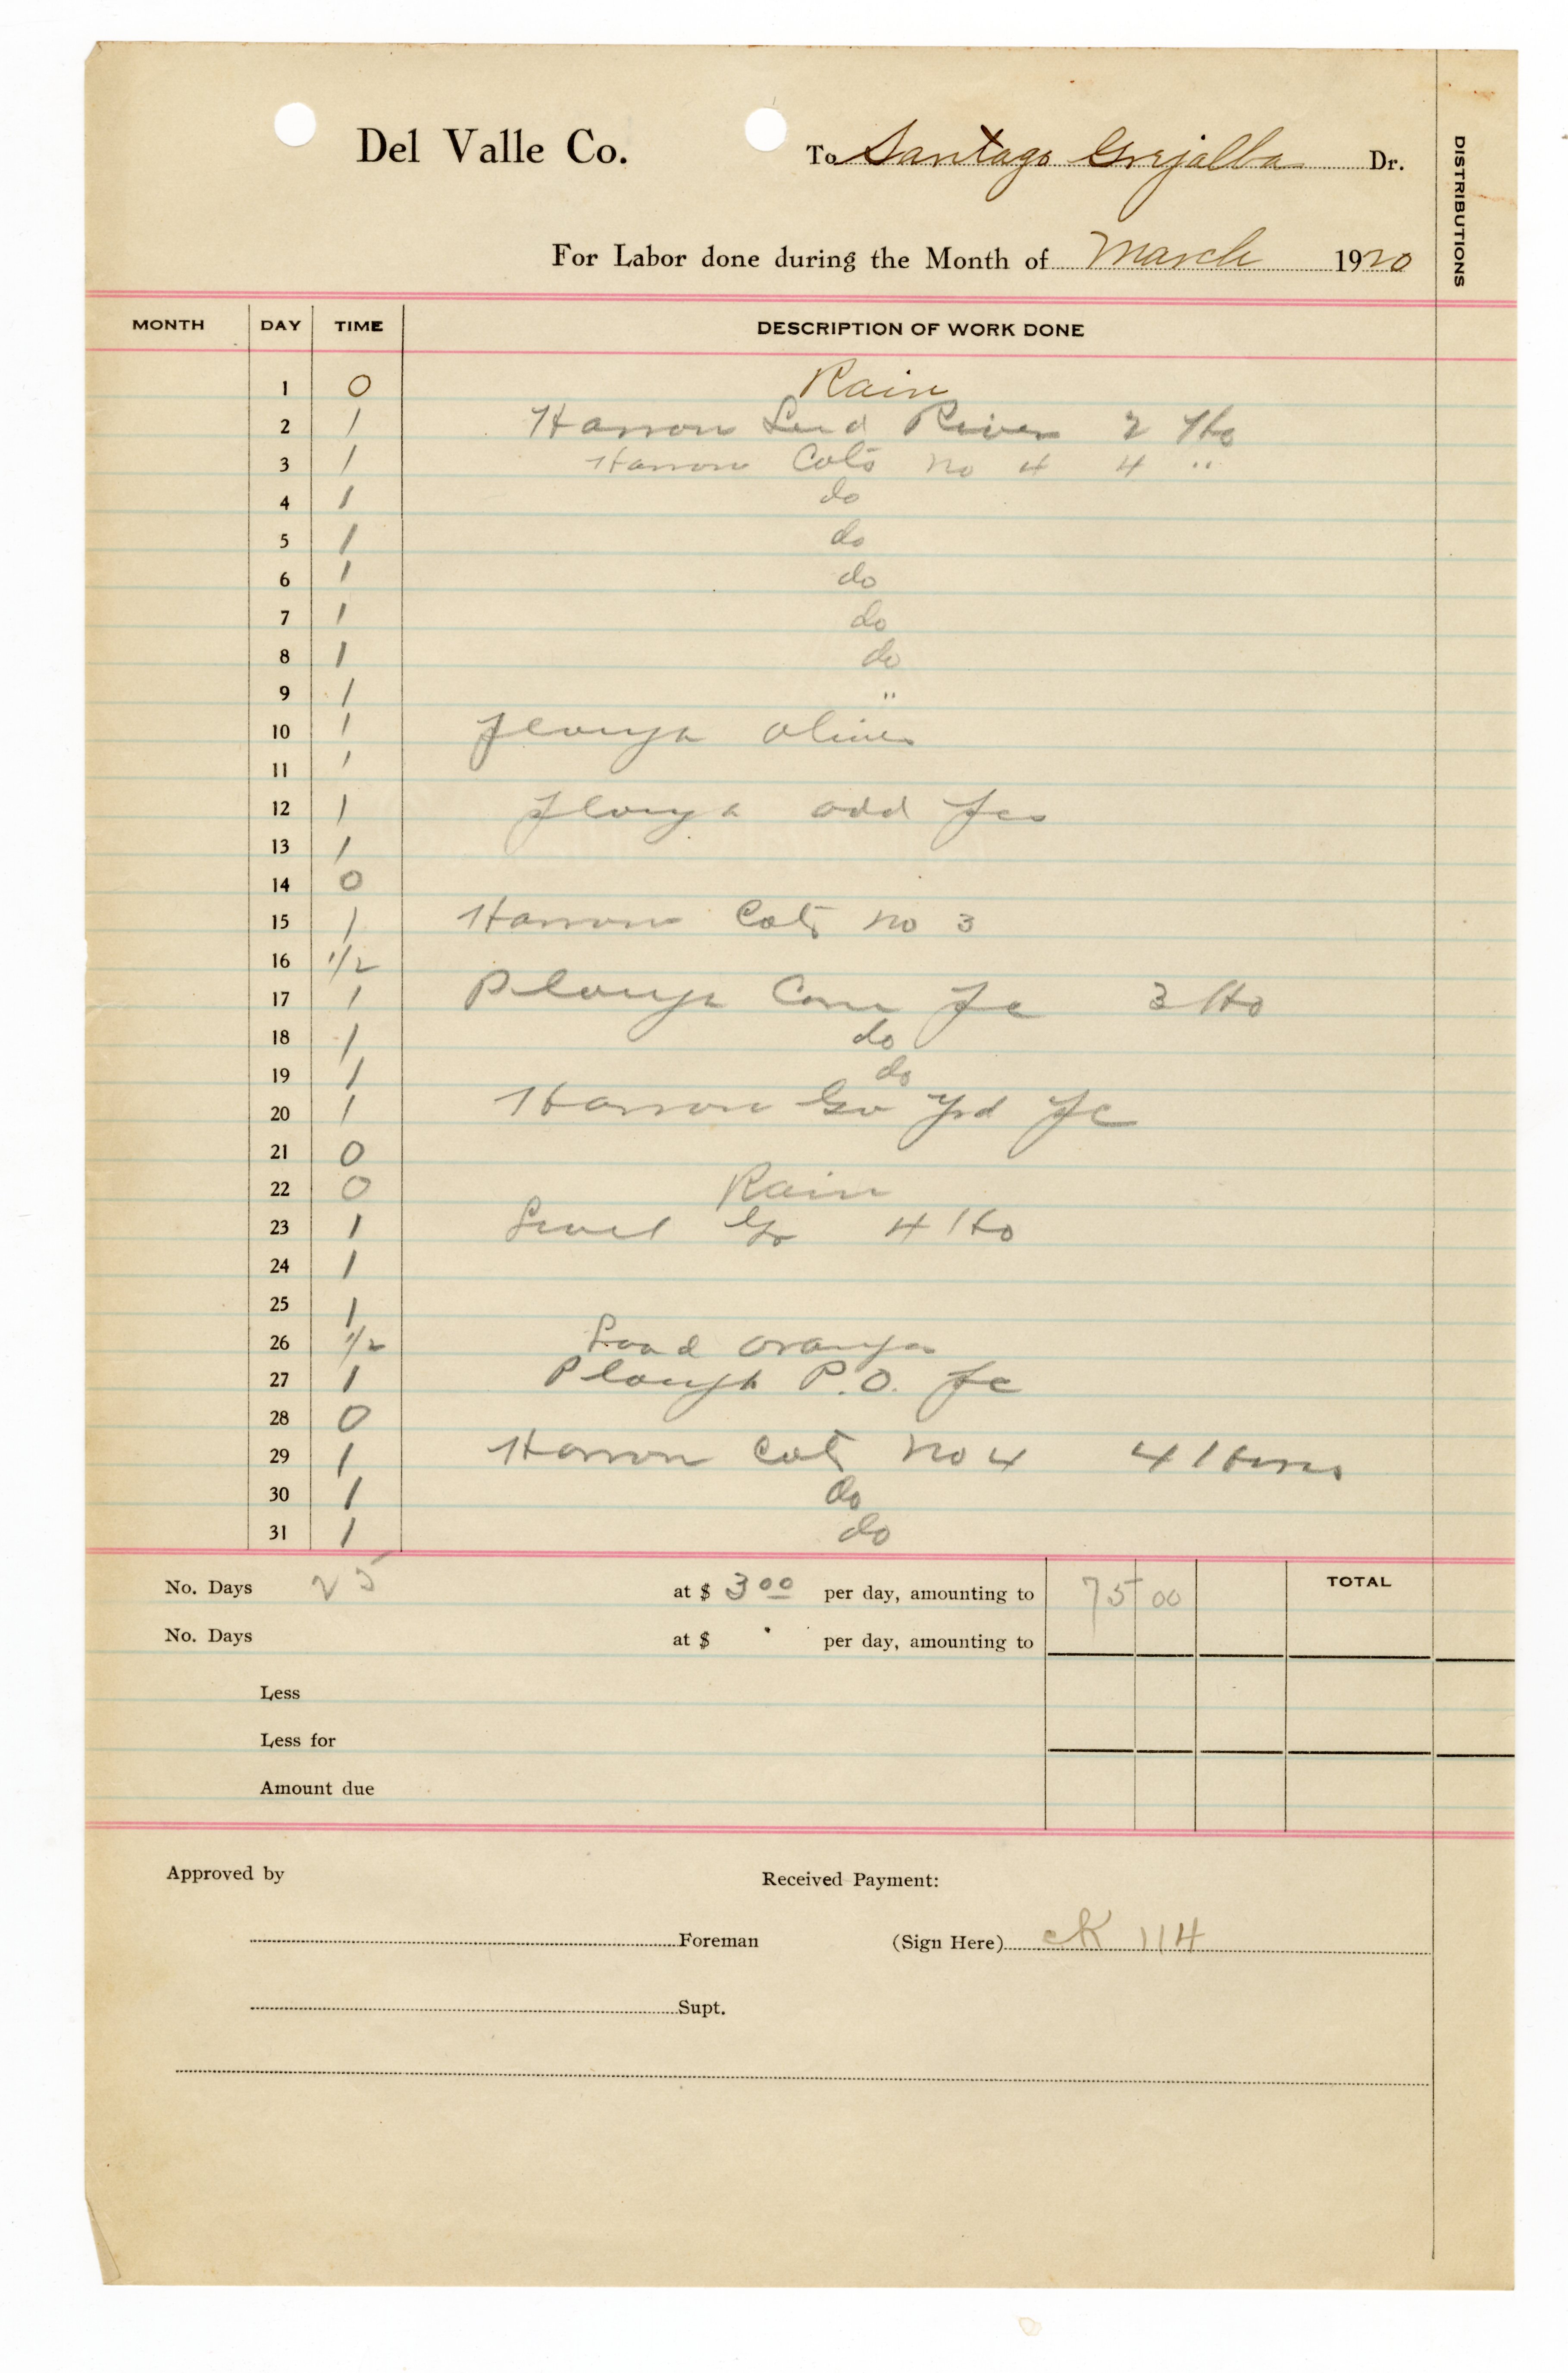 Del Valle Co. To Santago Grijalba Dr.
DISTRIBUTIONS
For Labor done during the Month of March 1920
MONTH DAY TIME DESCRIPTION OF WORK DONE
1 0 Rain
2 1 Harrow River 2 Ho
3 1 Harrow Cots No 4 4 "
4 1 do
5 1 do
6 1 do
7 1 do
8 1 do
9 1 "
10 1 plough olives
11 1
12 1 plough odd
13 1
14 0
15 1 Harrow Cots no 3
16 1/2
17 1 Plough Corn 3 Ho
18 1 do
19 1 do
20 1 Harrow Yrd
21 0
22 0 Rain
23 1 Level 4 Ho
24 1
25 1
26 1/2 Load oranges
27 1 Plough P.O.
28 0
29 1 Harrow Cots No 4 4 Horses
30 1 do
31 1 do
No. Days 25 at $ 3 00 per day, amounting to 75 00 TOTAL
No. Days at $ per day, amounting to
Less
Less for
Amount due
Approved by Received Payment:
Foreman (Sign Here) cK 114
Supt.